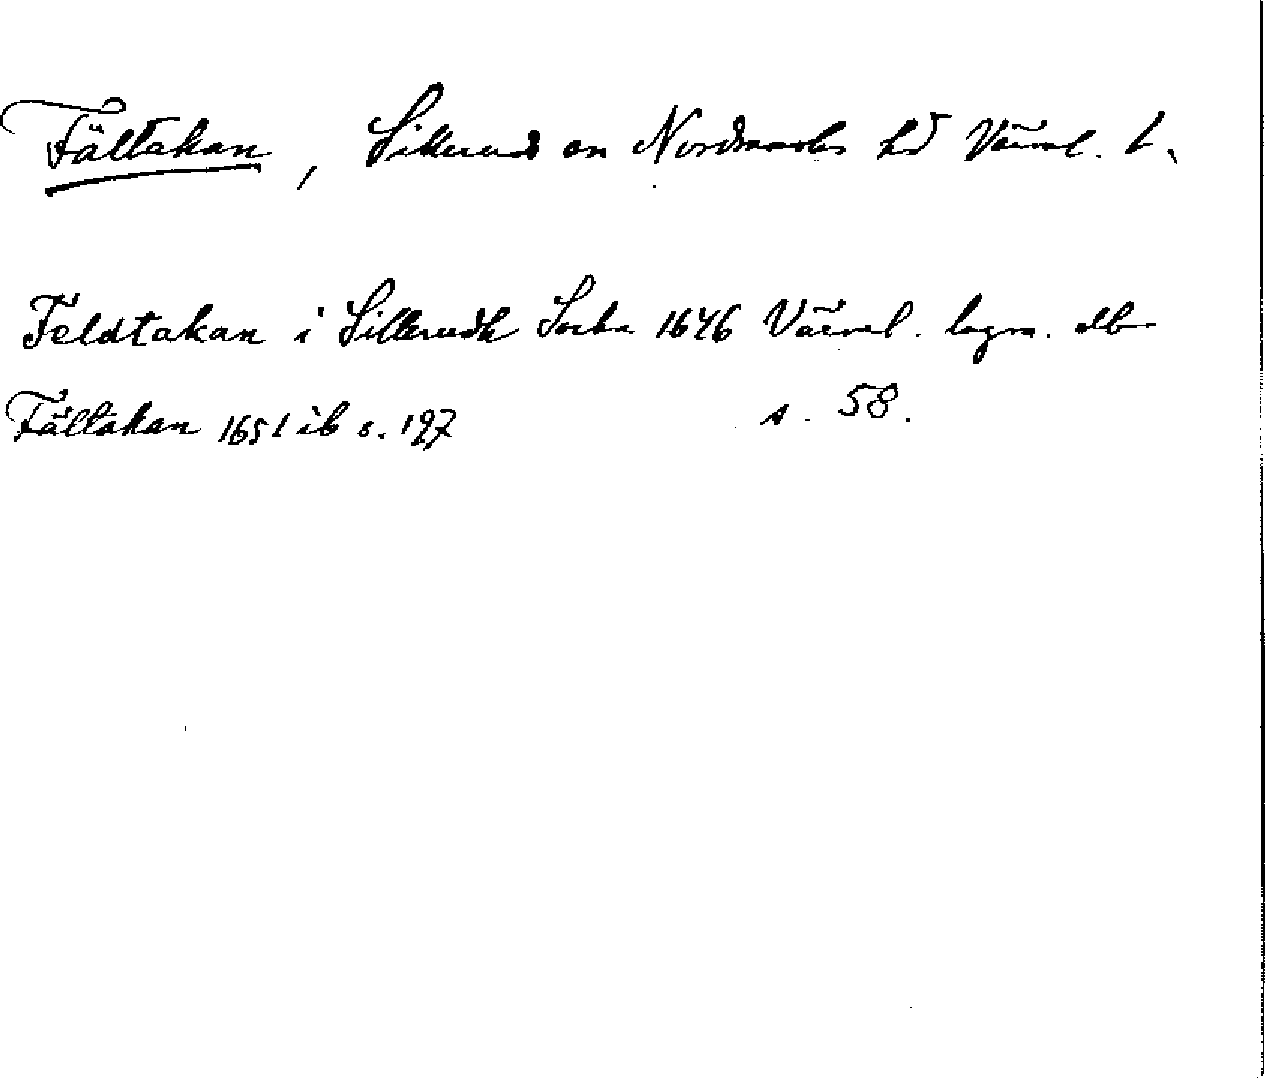 Fältakan, Sillerud sn Nordmarks hd Värml. l.
Feldtakan i Sillerudh Sockn 1646 Värml. lagm. db
s. 58.
Fältakan 1651 ib s. 197